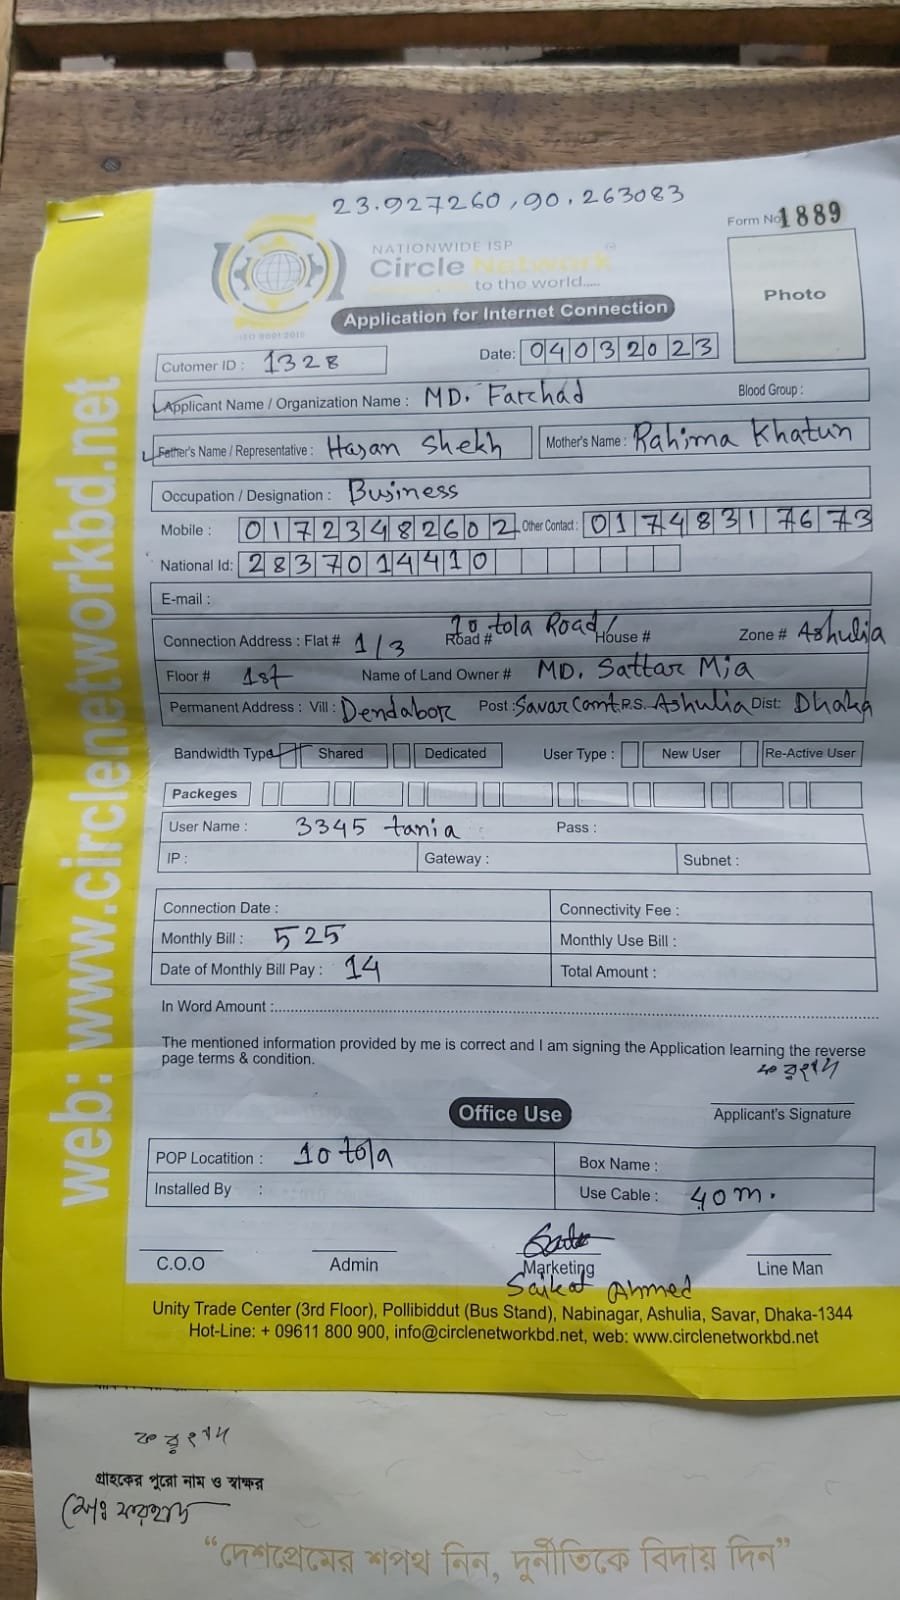 23.927260, 90.263083
Form No 1889
NATIONWIDE ISP
Circle Network
to the world.....
ISO 9001:2015
Photo
Application for Internet Connection
Cutomer ID : 1328 Date: 04032023
Applicant Name / Organization Name : MD. Farhad Blood Group :
Father's Name / Representative : Hasan Shekh Mother's Name : Rahima Khatun
Occupation / Designation : Business
Mobile : 01723482602 Other Contact : 01748317673
National Id: 2837014410
E-mail :
Connection Address : Flat # 1/3 Road # 10 tola Road/ House # Zone # Ashulia
Floor # 1st Name of Land Owner # MD. Sattar Mia
Permanent Address : Vill : Dendabor Post : Savar Cant. P.S. Ashulia Dist: Dhaka
Bandwidth Type Shared Dedicated User Type : New User Re-Active User
Packeges
User Name : 3345 tania Pass :
IP : Gateway : Subnet :
Connection Date : Connectivity Fee :
Monthly Bill : 525 Monthly Use Bill :
Date of Monthly Bill Pay : 14 Total Amount :
In Word Amount :
The mentioned information provided by me is correct and I am signing the Application learning the reverse
page terms & condition.
ফরহাদ
Applicant's Signature
Office Use
POP Locatition : 10 tola Box Name :
Installed By : Use Cable : 40m.
C.O.O Admin Marketing Line Man
Saikat Ahmed
Unity Trade Center (3rd Floor), Pollibiddut (Bus Stand), Nabinagar, Ashulia, Savar, Dhaka-1344
Hot-Line: + 09611 800 900, info@circlenetworkbd.net, web: www.circlenetworkbd.net
web: www.circlenetworkbd.net
ফরহাদ
গ্রাহকের পুরো নাম ও স্বাক্ষর
মোঃ ফরহাদ
“দেশপ্রেমের শপথ নিন, দুর্নীতিকে বিদায় দিন”